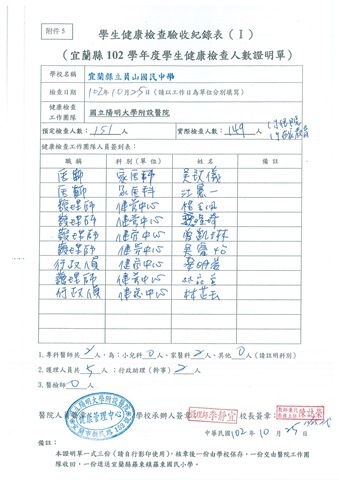 附件 5
學生健康檢查驗收紀錄表（I）
（宜蘭縣 102 學年度學生健康檢查人數證明單）
學校名稱 宜蘭縣立員山國民中學
檢查日期 102年10月25日(請以工作日為單位分別填寫)
健康檢查工作團隊 國立陽明大學附設醫院
預定檢查人數： 151 人 實際檢查人數： 149 人
健康檢查工作團隊人員簽到表：
職稱 科別(單位) 姓名 備註
醫師 家醫科
醫師 家醫科
護理師 健管中心
護理師 健管中心
護理師 健管中心
護理師 健管中心
行政人員 健管中心
護理師 健管中心
行政人員 健管中心
1.專科醫師共 2 人，為：小兒科 0 人、家醫科 2 人、其他 0 人(請註明科別)
2.護理人員共 5 人；行政助理（幹事） 2 人
3.醫檢師 0 人
醫院人員簽章 學校承辦人簽章 護理師 李靜宜 校長簽章：
國立陽明大學附設醫院
健康管理中心
中華民國 102 年 10 月 25 日
備註：
本證明單一式兩份(請自行影印使用)，核章後一份由學校保存，一份交由醫院工作團
隊收回，一份遞送宜蘭縣羅東鎮羅東國民小學。